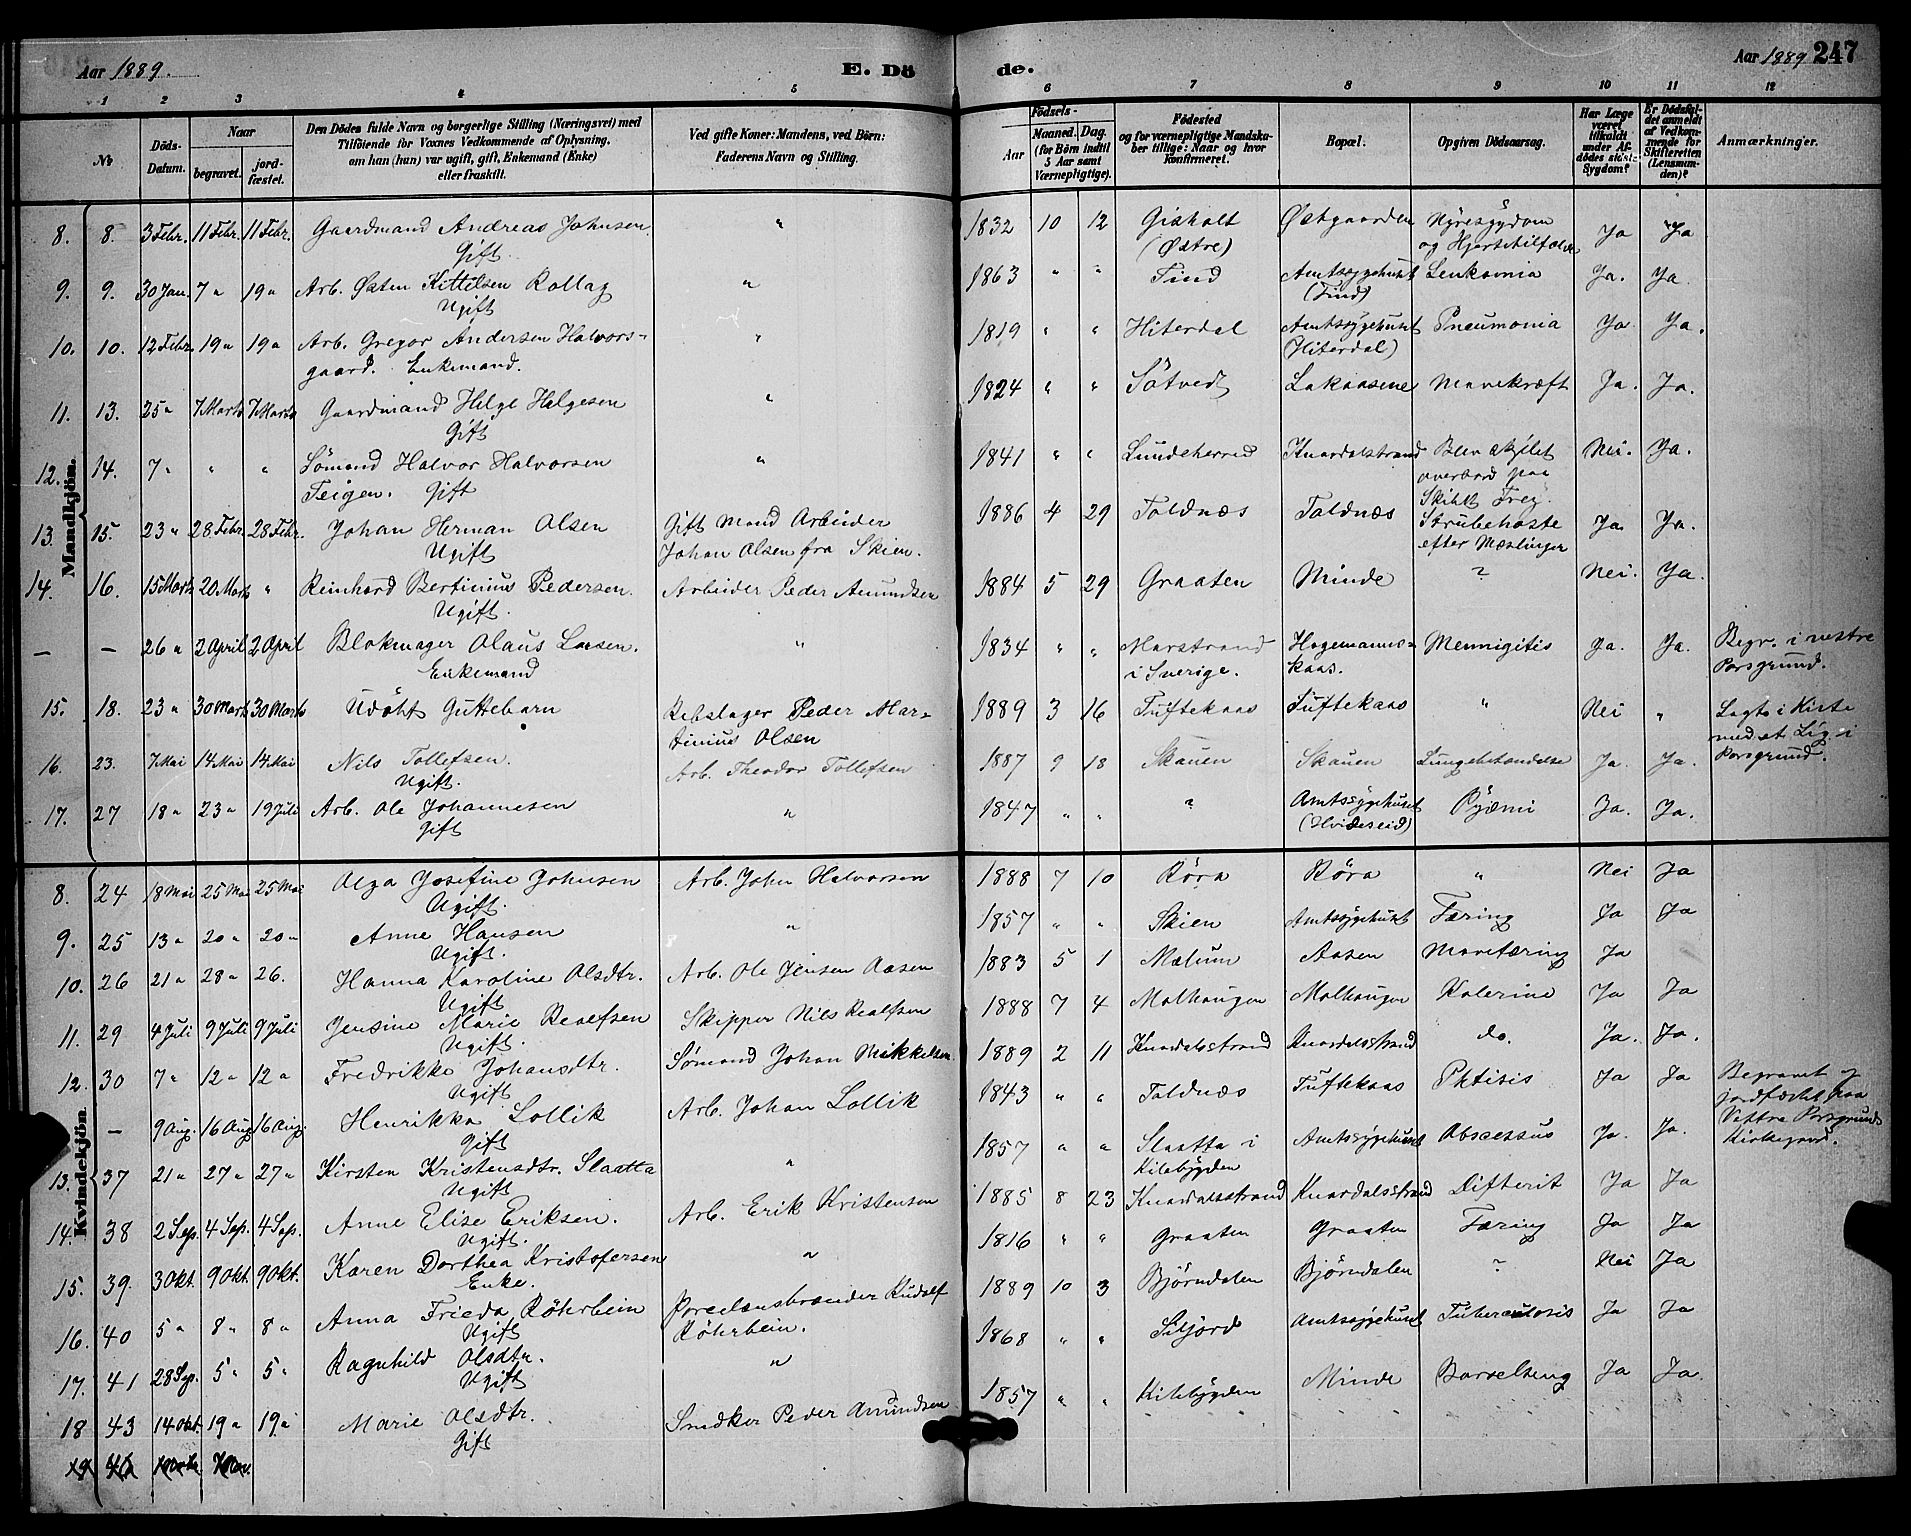 Aar 1889.
E. Döde.
Aar 1889 247
1 2 3 4 5 6 7 8 9 10 11 12
No
Döds-Datum.
Naar
begravet.
jord-fæstet.
Den Dödes fulde Navn og borgerlige Stilling (Næringsvei) med
Tilföiende for Voxnes Vedkommende af Oplysning,
om han (hun) var ugift, gift, Enkemand (Enke)
eller fraskilt.
Ved gifte Koner: Mandens, ved Börn:
Faderens Navn og Stilling.
Födsels-
Aar
Maaned. Dag.
(for Börn indtil
5 Aar samt
Værnepligtige).
Födested
og for værnepligtige Mandska-
ber tillige: Naar og hvor
Konfirmeret.
Bopæl.
Opgiven Dödsaarsag.
Har Læge
været
tilkaldt
under Af-
dödes sidste
Sygdom?
Er Dödsfal-
det anmeldt
af Vedkom-
mende for
Skifteretten
(Lensman-
den)?
Anmærkninger.
Mandkjön.
8. 8. 3 Febr. 11 Febr. 11 Febr. Gaardmand Andreas Johnsen. Gift. " 1832 10 12 Gisholt (Østre) Østgaarden Nyresygdom og Hjertetilfælde Ja Ja
9. 9. 30 Jan. 7 " 19 " Arb. Østen Kittilsen Rollag Ugift " 1863 " " Tind Amtssygehuset (Tind) Leukæmia Ja. Ja.
10. 10. 12 Febr. 19 " 19 " Arb. Gregor Andersen Halvors-
gaard. Enkemand. " 1819 " " Hiterdal Amtssygehuset (Hiterdal) Pneumonia Ja Ja.
11. 13. 25 " 7 Marts 7 Marts Gaardmand Helge Helgesen Gift " 1824 " " Sötvedt Lakaasene Mavekræft Ja. Ja.
12. 14. 7 " " " Sömand Halvor Halvorsen
Teigen. Gift " 1841 " " Lundeherred Knardalstrand Blev skyllet overbord paa Skibet Frey. Nei. Ja.
13. 15. 23 " 28 Febr. 28 Febr. Johan Herman Olsen Ugift Gift Mand Arbeider
Johan Olsen fra Skien. 1886 4 29 Toldnæs Toldnæs Strubehoste efter Mæslinger Ja. Ja.
14. 16. 15 Marts 20 Marts " Reinhard Bertinius Pedersen. Ugift. Arbeider Peder Amundsen 1884 5 29 Graaten Minde ? Nei. Ja.
— — 26 " 2 April 2 April Blokmager Olaus Larsen. Enkemand " 1834 " " Marstrand i Sverige. Hagemanns-kaas. Mennigitis Ja. Ja. Begr. i vestre Porsgrund.
15. 18. 23 " 30 Marts 30 Marts Udöbt Guttebarn Rebslager Peder Mar-
tinius Olsen 1889 3 16 Tuftekaas Tuftekaas " Nei " Lagt i Kiste med et Lig i Porsgrund.
16. 23. 7 Mai 14 Mai 14 Mai Nils Tollefsen. Ugift. Arb. Theodor Tollefsen 1887 9 18 Skauen Skauen Lungebetændelse Ja. Ja.
17. 27 18 " 23 " 19 Juli Arb. Ole Johannesen Gift " 1847 " " ? Amtssygehuset (Hvideseid) Pyæmi Ja. Ja.
Kvindekjön.
8. 24 18 Mai 25 Mai 25 Mai Olga Josefine Johnsen Ugift. Arb. John Halvorsen 1888 7 10 Röra Röra " Nei Ja
9. 25 13 " 20 " 20 " Anne Hansen Ugift. " 1857 " " Skien Amtssygehuset Tæring Ja Ja
10. 26 21 " 28 " 26. Hanna Karoline Olsdtr. Ugift Arb. Ole Jensen Aasen 1883 5 1 Mælum Aasen Mavetæring Ja
11. 29 4 Juli 9 Juli 9 Juli Jensine Marie Realfsen Ugift. Skipper Nils Realfsen 1888 7 4 Molhaugen Molhaugen Kolerine Ja Ja
12. 30 7 " 12 " 12 " Fredrikke Johansdtr. Ugift Sømand Johan Mikkelsen 1889 2 11 Knardalsstrand Knardalsstrand do. Ja. Ja.
— 9 Aug. 16 Aug. 16 Aug. Henrikka Lollik Gift Arb. Johan Lollik 1843 " " Toldnæs Tuftekaas Phtisis Ja Ja Begravet og jordfæstet paa Vestre Porsgrunds Kirkegaard.
13. 37 21 " 27 " 27 " Kirsten Kristensdtr. Slaatta Ugift " 1857 " " Slaatta i Kilebygden Amtssygehuset Abscessus Ja. Ja.
14. 38 2 Sep. 4 Sep. 4 Sep. Anne Elise Eriksen. Ugift. Arb. Erik Kristensen 1885 8 23 Knardalsstrand Knardalsstrand Difterit Ja Ja
15. 39. 3 Okt. 9 Okt. 9 Okt. Karen Dorthea Kristofersen Enke. " 1816 " " Graaten Graaten Tæring Ja Ja
16. 40 5 " 8 " 8 " Anna Frieda Röhrbein Ugift Porcelænsbrænder Rudolf
Röhrbein. 1889 10 3 Bjørndalen Bjørndalen ? Nei Ja
17. 41 28 Sep. 5 " 5 " Ragnhild Olsdtr. Ugift " 1868 " " Siljord Amtssygehuset Tuberculosis Ja Ja
18 43 14 Okt. 19 " 19 " Marie Olsdtr. Gift Snedker Peder Amundsen 1857 " " Kilebygden Minde Barselseng Ja Ja.
19 46